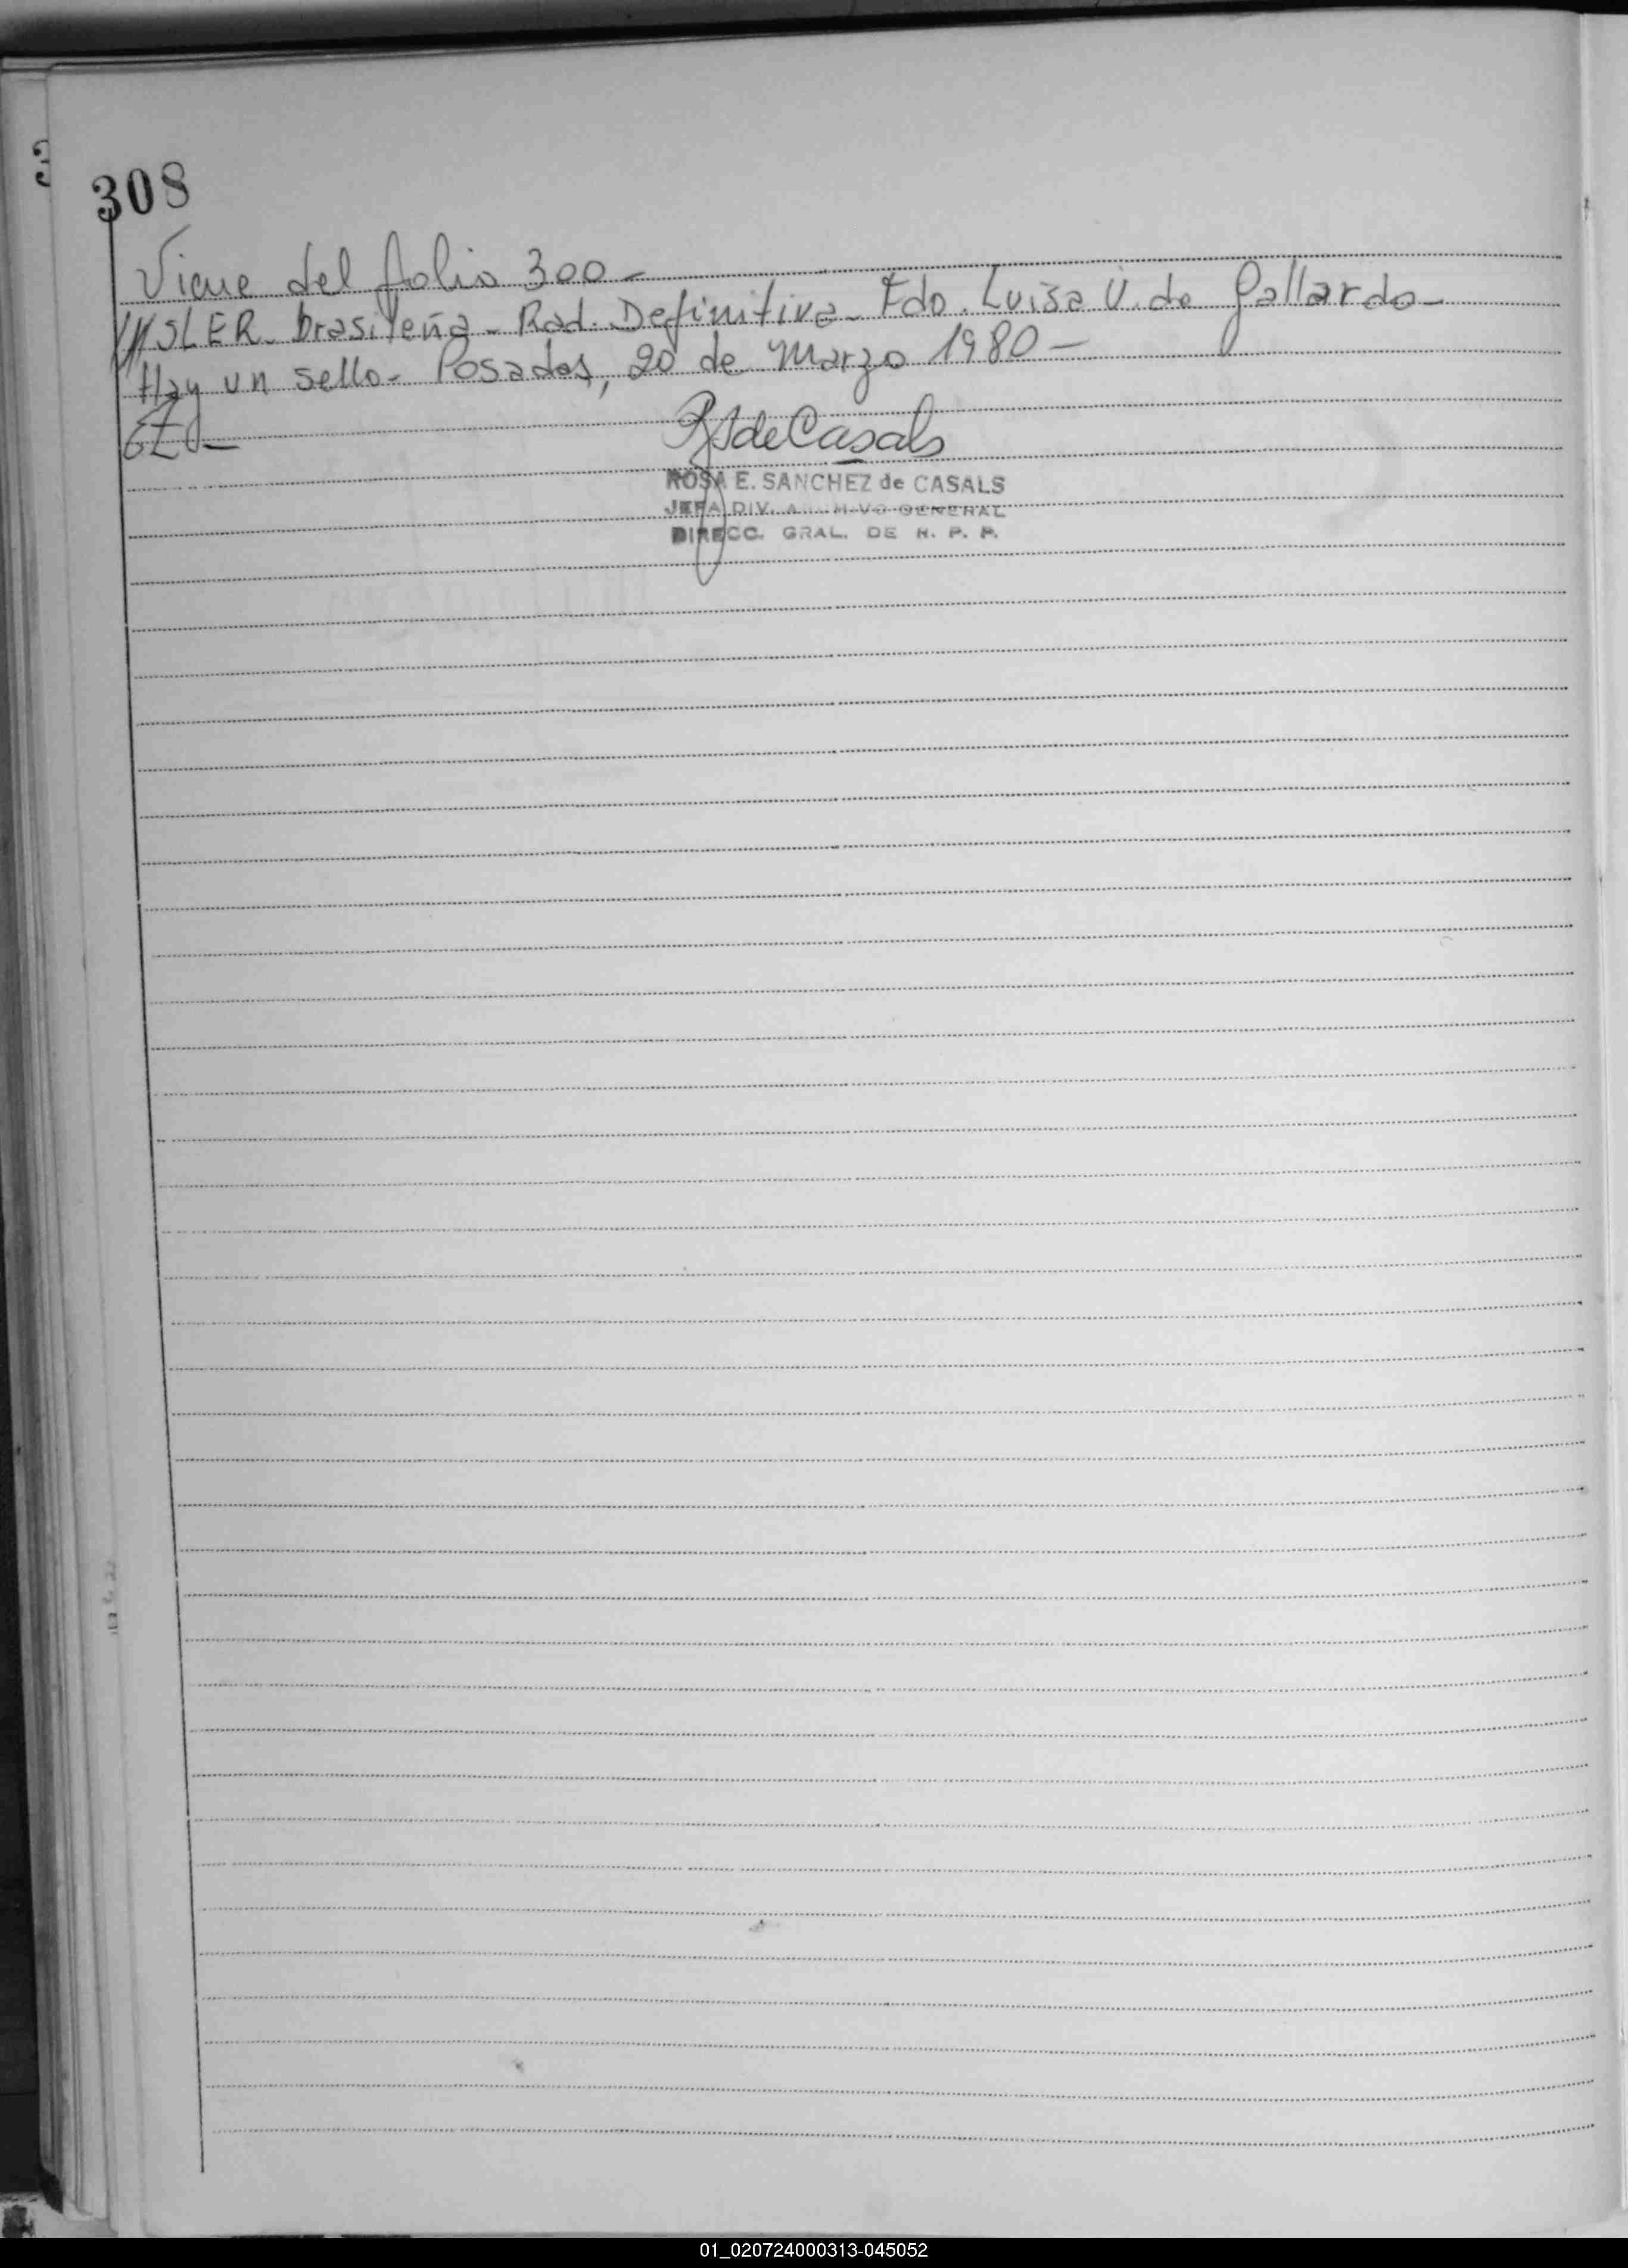 308
Viene del folio 300-
///SLER- brasileña- Rad. Definitiva- Fdo. Luisa V. de Gallardo-
Hay un sello- Posadas, 20 de Marzo 1980-
ROSA E. SANCHEZ de CASALS
JEFA DIV. GENERAL
DIRECC. GRAL. DE R. P. P.
01_020724000313-045052